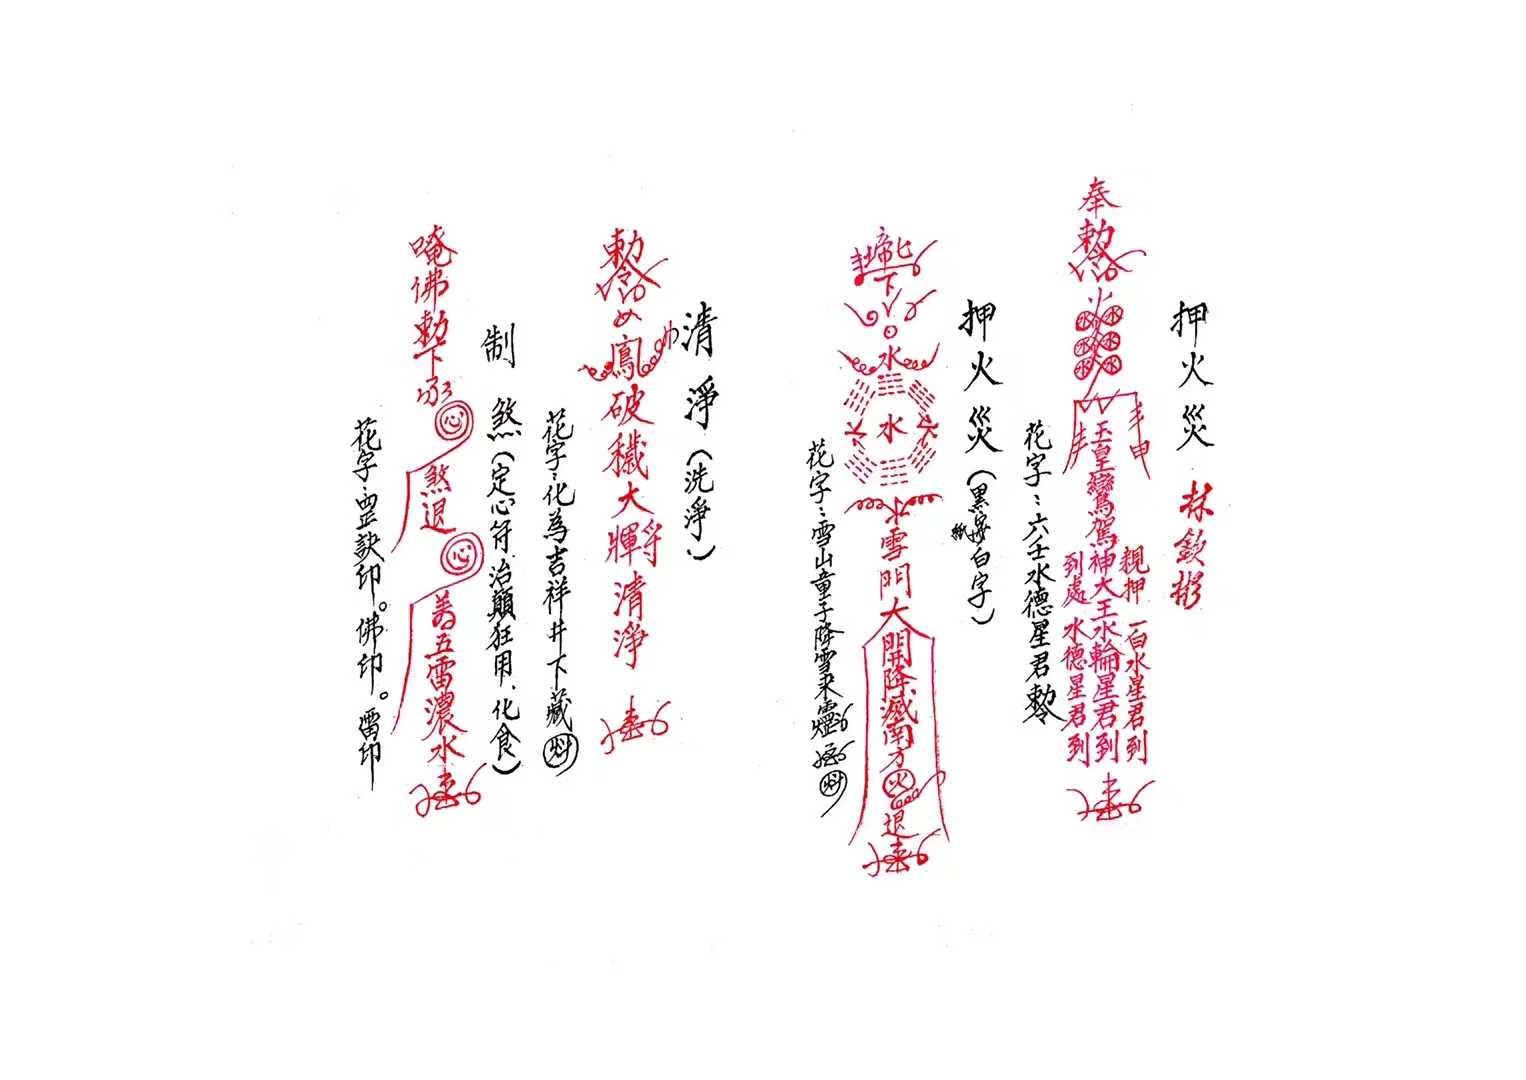 押火災 林欽彬
奉勅令
火
水水水水水水
玉皇鸞駕神大王水輪星君到
親押一白水星君到
到處水德星君到
花字：六壬水德星君勅令
押火災（黑紙白字）
下
水
水
雪門大開降滅南方火退
花字：雪山童子降雪来靈
清淨（洗淨）
勅令
破穢大將軍清淨
花字：化為吉祥井下藏
制煞（定心符.治顛狂用、化食）
唵佛勅下
心
煞退
心
五雷濃水
花字：罡訣印。佛印。雷印